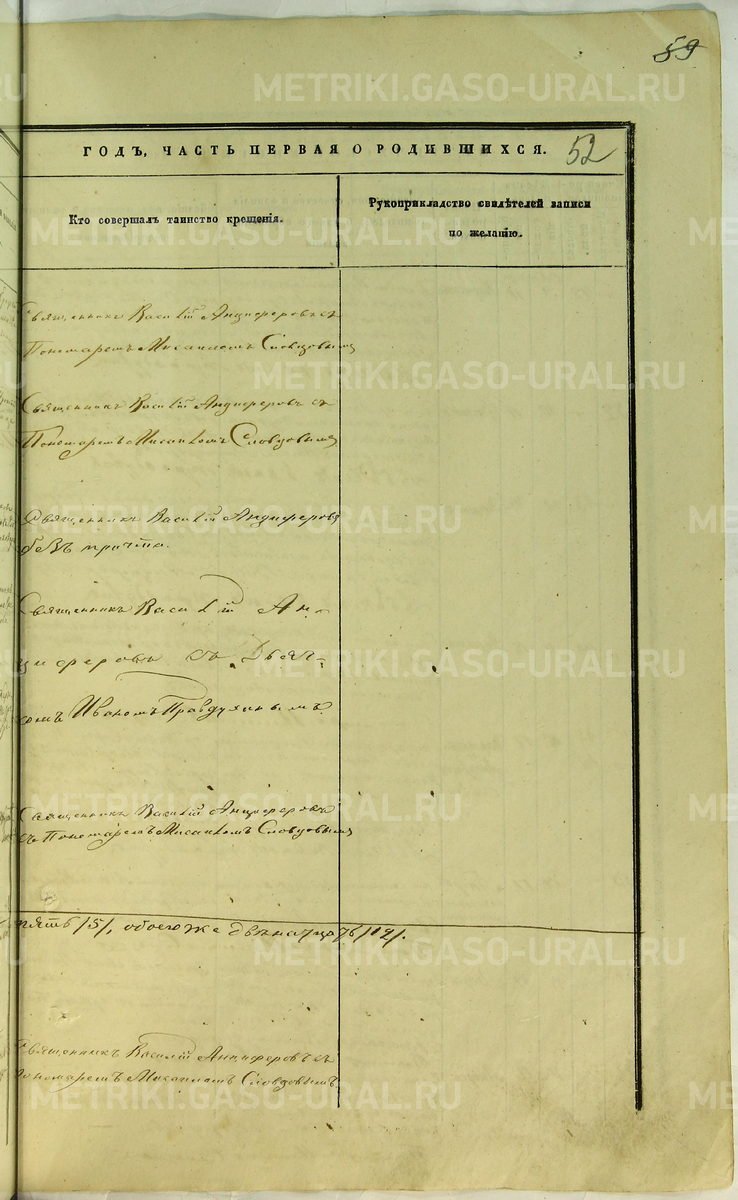 59
ГОДЪ, ЧАСТЬ ПЕРВАЯ О РОДИВШИХСЯ.
52
Кто совершалъ таинство крещенія.
Рукоприкладство свидѣтелей записи
по желанію.
Священникъ Василій Анциферовъ съ
Пономаремъ Мисаиломъ Словцовымъ
Священникъ Василій Анциферовъ съ
Пономаремъ Мисаиломъ Словцовымъ
Священникъ Василій Анциферовъ
безъ причта.
Священникъ Василій Ан-
циферовъ съ Дьяч-
комъ Иваномъ Правдухинымъ
Священникъ Василій Анциферовъ
съ Пономаремъ Мисаиломъ Словцовымъ
пять /5/, обоего же двенадцать /12/.
Священникъ Василій Анциферовъ съ
Пономаремъ Мисаиломъ Словцовымъ
METRIKI.GASO-URAL.RU